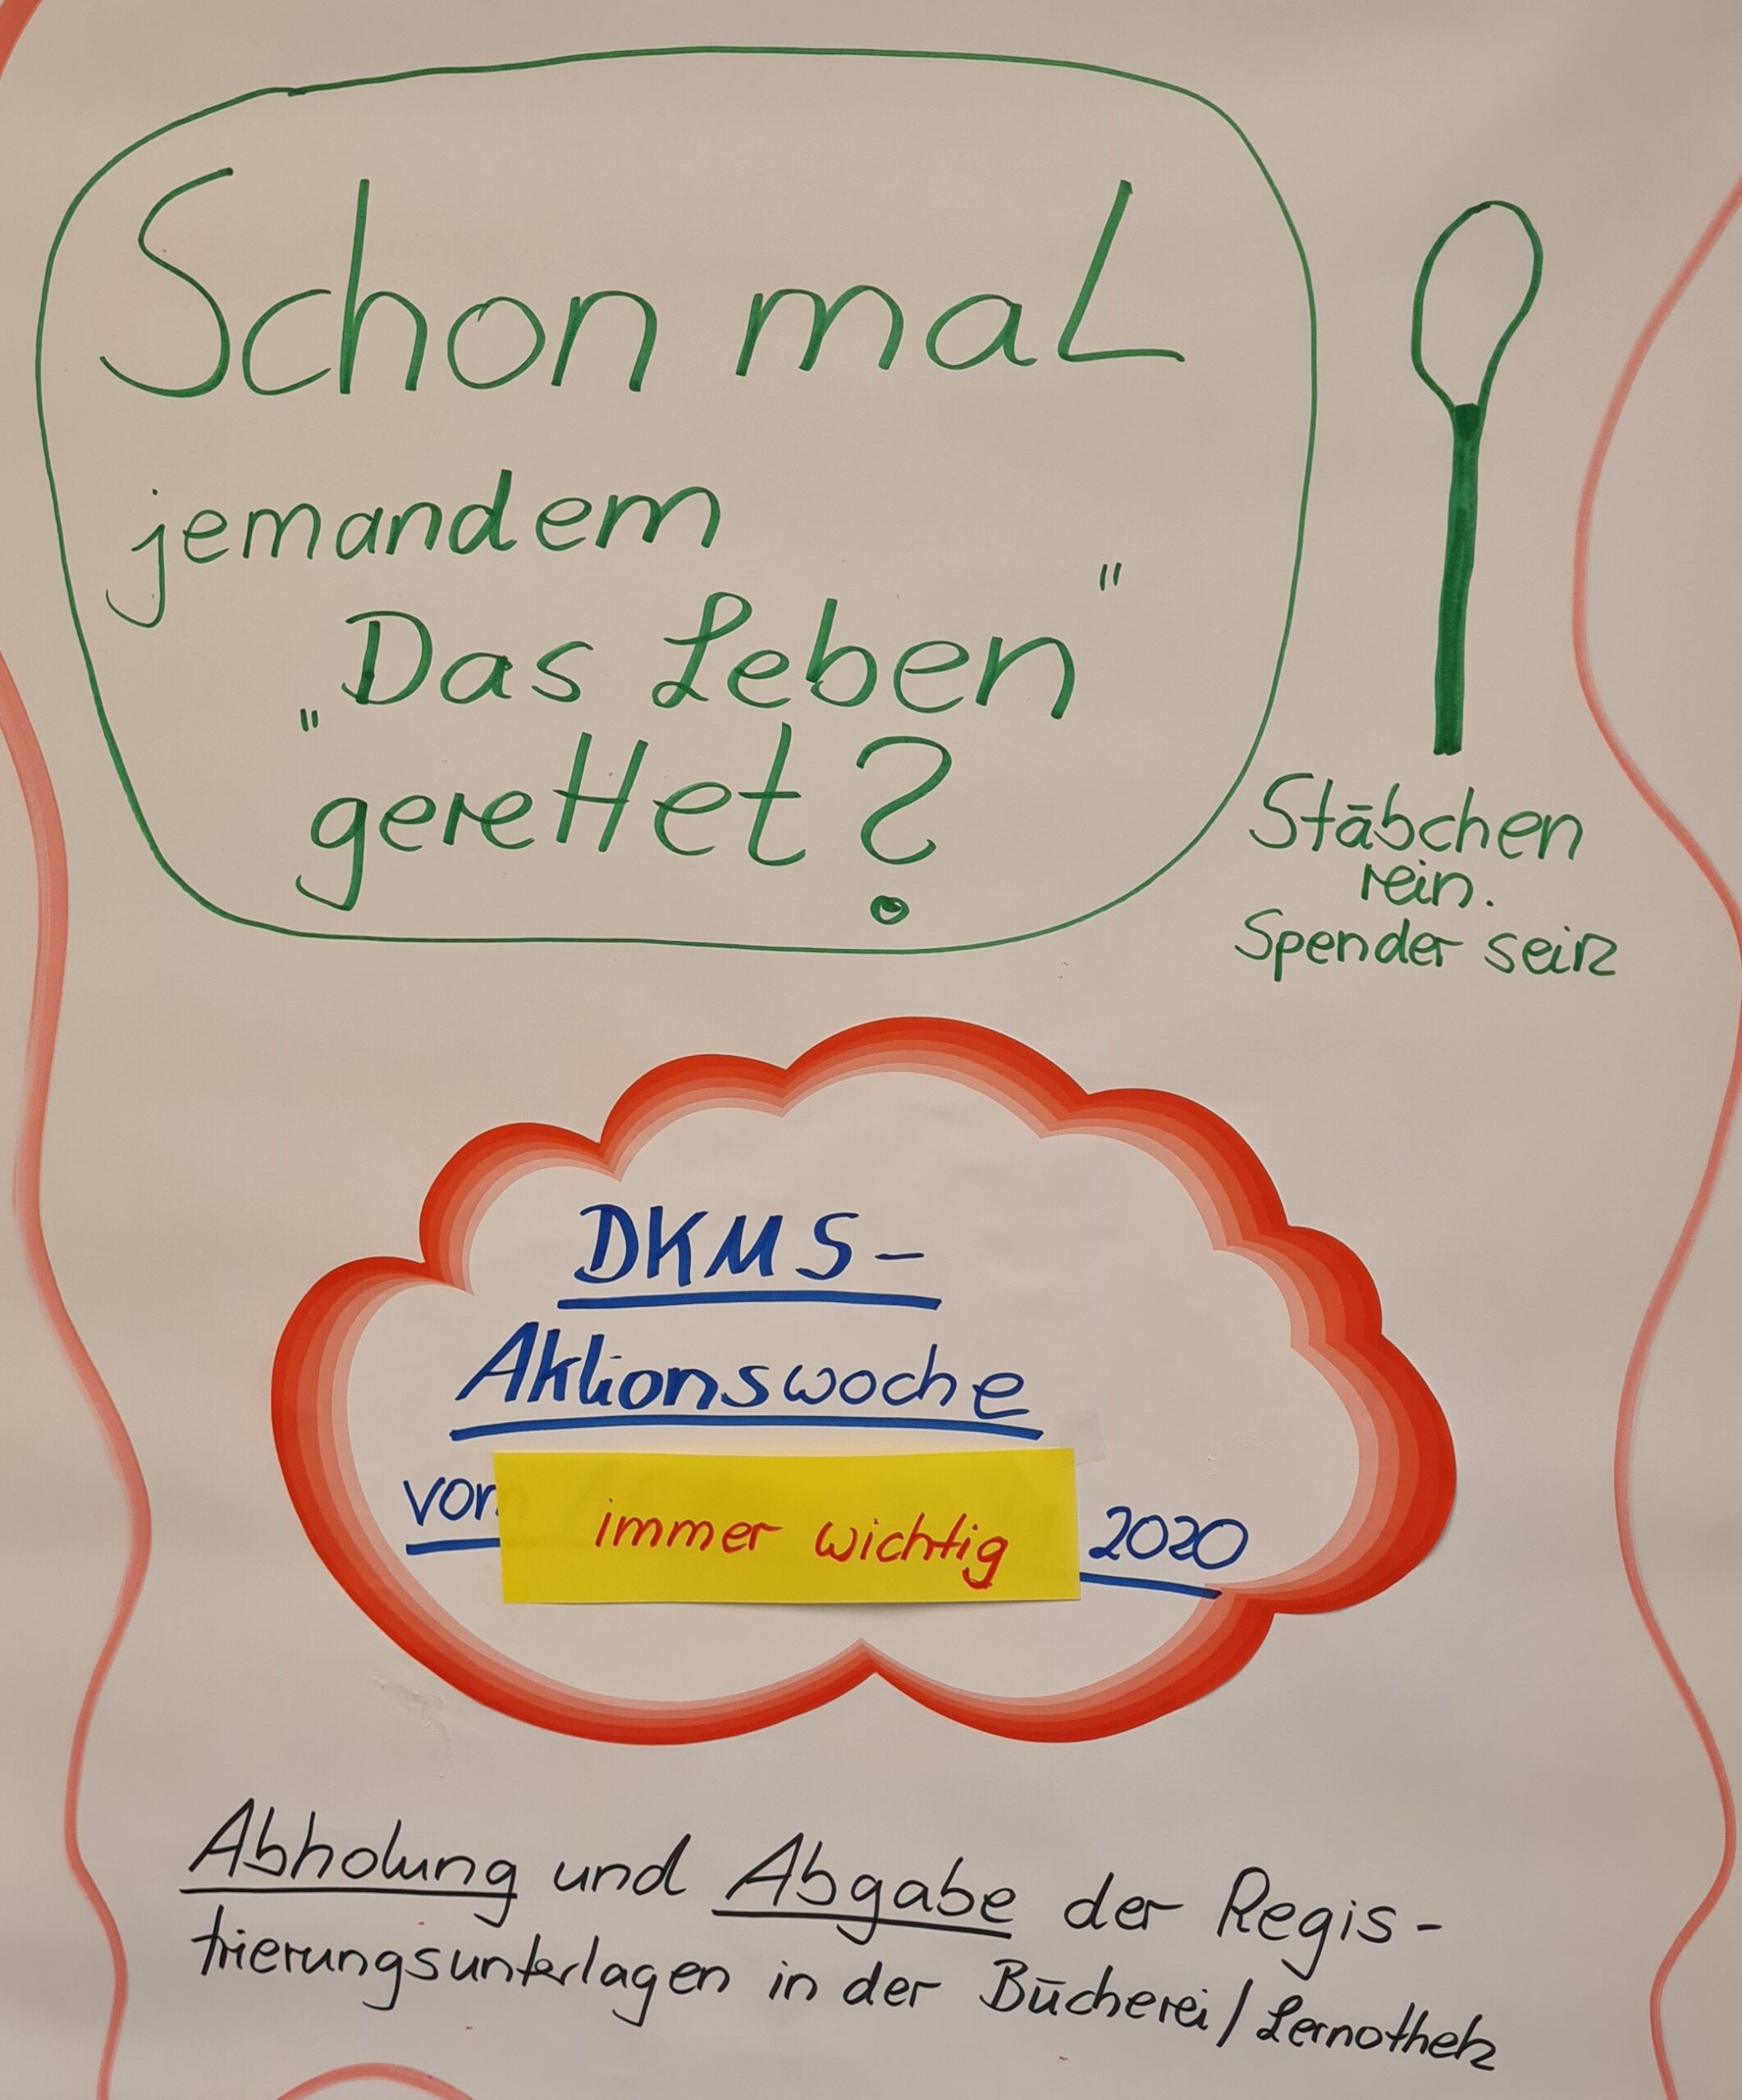 Schon mal
jemandem
„Das Leben"
gerettet?
Stäbchen
rein.
Spender sein
DKMS-
Aktionswoche
vom immer wichtig 2020
Abholung und Abgabe der Regis-
trierungsunterlagen in der Bücherei/Lernothek